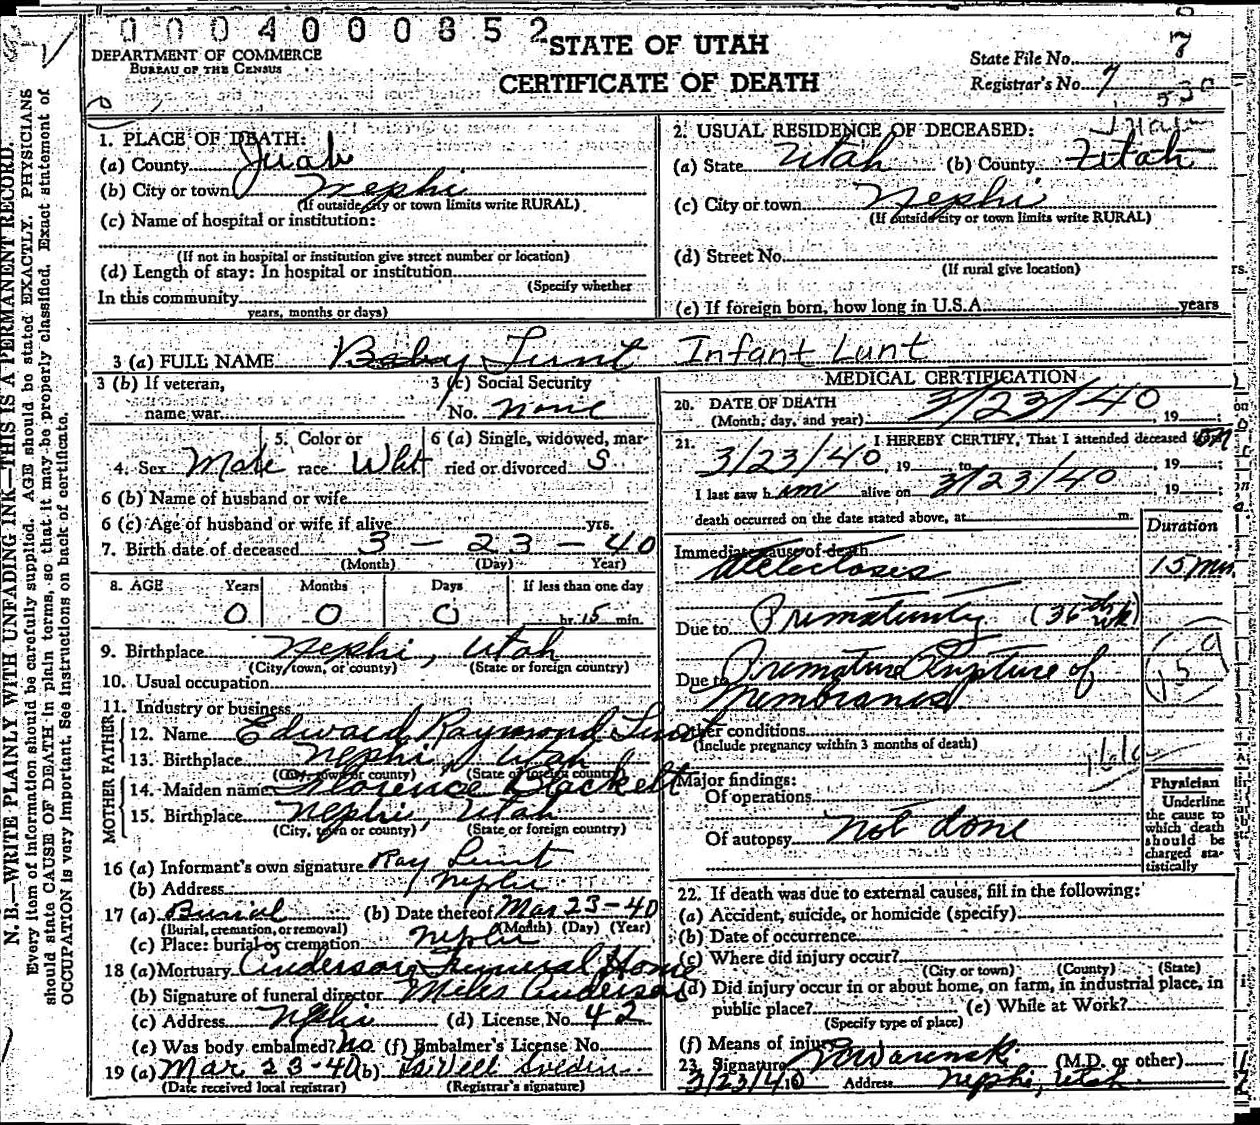 0004000852
STATE OF UTAH
CERTIFICATE OF DEATH
DEPARTMENT OF COMMERCE
BUREAU OF THE CENSUS
State File No. 7
Registrar's No. 7
530
N. B.—WRITE PLAINLY WITH UNFADING INK—THIS IS A PERMANENT RECORD.
Every item of information should be carefully supplied. AGE should be stated EXACTLY. PHYSICIANS
should state CAUSE OF DEATH in plain terms, so that it may be properly classified. Exact statement of
OCCUPATION is very important. See instructions on back of certificate.
1. PLACE OF DEATH:
(a) County Juab
(b) City or town Nephi
(If outside city or town limits write RURAL)
(c) Name of hospital or institution:
(If not in hospital or institution give street number or location)
(d) Length of stay: In hospital or institution
(Specify whether
In this community
years, months or days)
2. USUAL RESIDENCE OF DECEASED:
(a) State Utah (b) County Utah
(c) City or town Nephi
(If outside city or town limits write RURAL)
(d) Street No.
(If rural give location)
(e) If foreign born, how long in U.S.A. years
3 (a) FULL NAME Baby Lunt Infant Lunt
3 (b) If veteran,
name war
3 (c) Social Security
No. none
4. Sex Male
5. Color or
race Whit
6 (a) Single, widowed, mar-
ried or divorced S
6 (b) Name of husband or wife
6 (c) Age of husband or wife if alive yrs.
7. Birth date of deceased 3 - 23 - 40
(Month) (Day) Year)
8. AGE Years Months Days If less than one day
0 0 0 hr. 15 min.
9. Birthplace Nephi, Utah
(City, town, or county) (State or foreign country)
10. Usual occupation
11. Industry or business
FATHER
12. Name Edward Raymond Lunt
13. Birthplace Nephi, Utah
(City, town or county) (State of foreign country)
MOTHER
14. Maiden name Florence Blackett
15. Birthplace Nephi, Utah
(City, town or county) (State or foreign country)
16 (a) Informant's own signature Ray Lunt
(b) Address Nephi
17 (a) Burial (b) Date thereof Mar 23-40
(Burial, cremation, or removal) (Month) (Day) (Year)
(c) Place: burial or cremation Nephi
18 (a) Mortuary Anderson Funeral Home
(b) Signature of funeral director Miles Anderson
(c) Address Nephi (d) License No. 42
(e) Was body embalmed? No (f) Embalmer's License No.
19 (a) Mar 23-40 (b)
(Date received local registrar) (Registrar's signature)
MEDICAL CERTIFICATION
20. DATE OF DEATH 3/23/40
(Month, day, and year) , 19
21. I HEREBY CERTIFY, That I attended deceased
3/23/40, 19 to 3/23/40, 19 ;
I last saw him alive on 3/23/40, 19 ;
death occurred on the date stated above, at m.
Duration
Immediate cause of death
Atelectosis 15 min
Due to Prematurity (36th wk)
Due to Premature Rupture of
Membranes
159
Other conditions
(Include pregnancy within 3 months of death)
Major findings:
Of operations
Of autopsy not done
Physician
Underline
the cause to
which death
should be
charged sta-
tistically
22. If death was due to external causes, fill in the following:
(a) Accident, suicide, or homicide (specify)
(b) Date of occurrence
(c) Where did injury occur?
(City or town) (County) (State)
(d) Did injury occur in or about home, on farm, in industrial place, in
public place? (e) While at Work?
(Specify type of place)
(f) Means of injury
23. Signature (M.D. or other)
3/23/40 Address Nephi, Utah